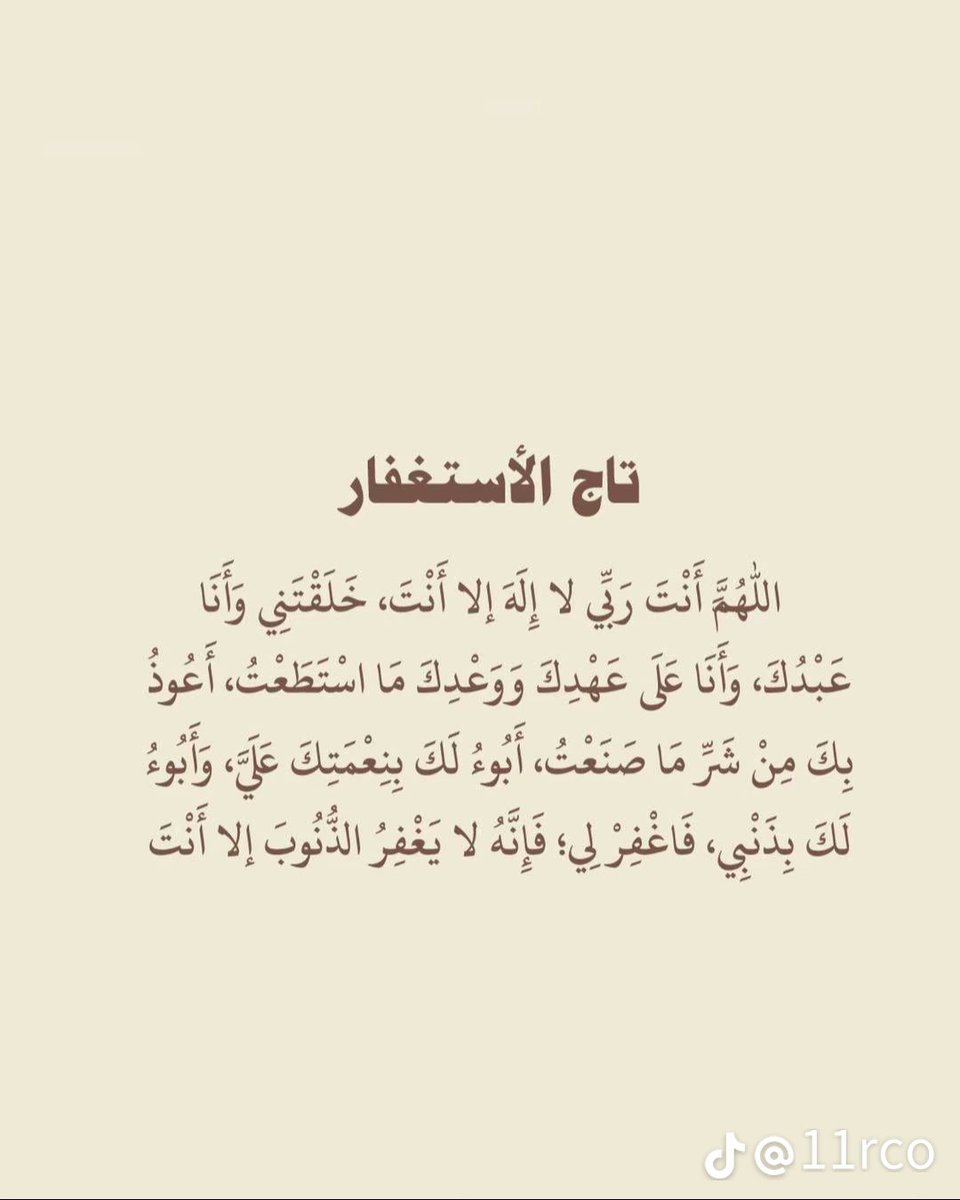 تاج الأستغفار
اللّٰهُمَّ أَنْتَ رَبِّي لا إِلَهَ إلا أَنْتَ، خَلَقْتَنِي وَأَنَا
عَبْدُكَ، وَأَنَا عَلَى عَهْدِكَ وَوَعْدِكَ مَا اسْتَطَعْتُ، أَعُوذُ
بِكَ مِنْ شَرِّ مَا صَنَعْتُ، أَبُوءُ لَكَ بِنِعْمَتِكَ عَلَيَّ، وَأَبُوءُ
لَكَ بِذَنْبِي، فَاغْفِرْ لِي؛ فَإِنَّهُ لا يَغْفِرُ الذُّنُوبَ إلا أَنْتَ
@11rco